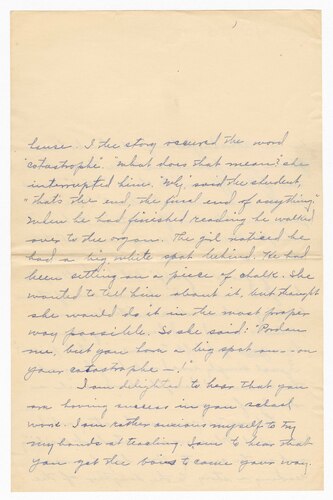 house. I the story occured the word
"catastrophe". "What does that mean? she
interrupted him. "Why," said the student,
"that's the end, the final end of anything."
When he had finished reading he walked
over to the organ. The girl noticed he
had a big white spot behind. He had
been sitting on a piece of chalk. She
wanted to tell him about it, but thought
she would do it in the most proper
way possible. So she said: "Pardon
me, but you have a big spot on--on
your catastrophe —!"
I am delighted to hear that you
are having success in your school
work. I am rather anxious myself to try
my hands at teaching. I am to hear that
you got the boys to come your way.